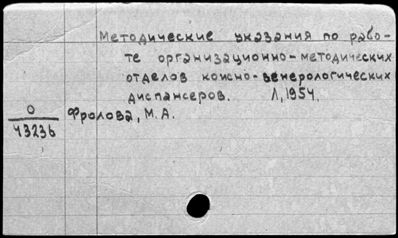 Методические указания по рабо-
те организационно-методических
отделов кожно-венерологических
диспансеров. Л, 1954.
О
43236
Фролова, М.А.